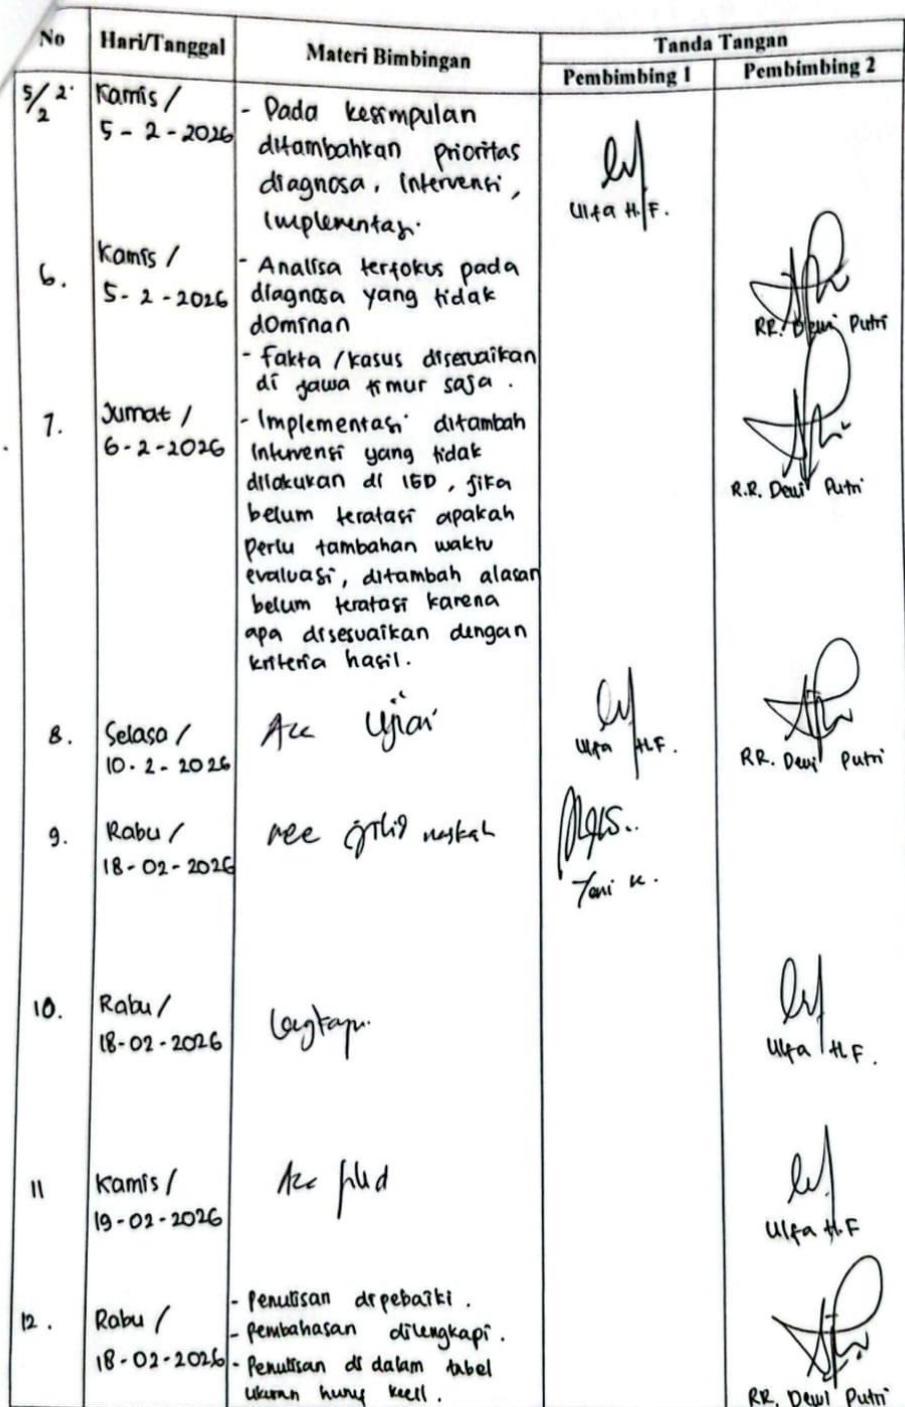 No Hari/Tanggal Materi Bimbingan Tanda Tangan
Pembimbing 1 Pembimbing 2
5/2 2. Kamis /
5 - 2 - 2026
- Pada kesimpulan
ditambahkan prioritas
diagnosa, intervensi,
Implementasi.
Ulfa H.F.
6. Kamis /
5 - 2 - 2026
- Analisa terfokus pada
diagnosa yang tidak
dominan
- Fakta / kasus disesuaikan
di jawa timur saja.
RR. Dewi Putri
7. Jumat /
6 - 2 - 2026
- Implementasi ditambah
Intervensi yang tidak
dilakukan di IGD, jika
belum teratasi apakah
perlu tambahan waktu
evaluasi, ditambah alasan
belum teratasi karena
apa disesuaikan dengan
kriteria hasil.
R.R. Dewi Putri
8. Selasa /
10 - 2 - 2026
Acc Ujian
Ulfa H.F.
RR. Dewi Putri
9. Rabu /
18 - 02 - 2026
naskah
10. Rabu /
18 - 02 - 2026
Lengkapi
Ulfa H.F.
11 Kamis /
19 - 02 - 2026
Acc
Ulfa H.F
12. Rabu /
18 - 02 - 2026
- Penulisan dipebaiki.
- Pembahasan dilengkapi.
- Penulisan di dalam tabel
ukuran huruf kecil.
RR. Dewi Putri